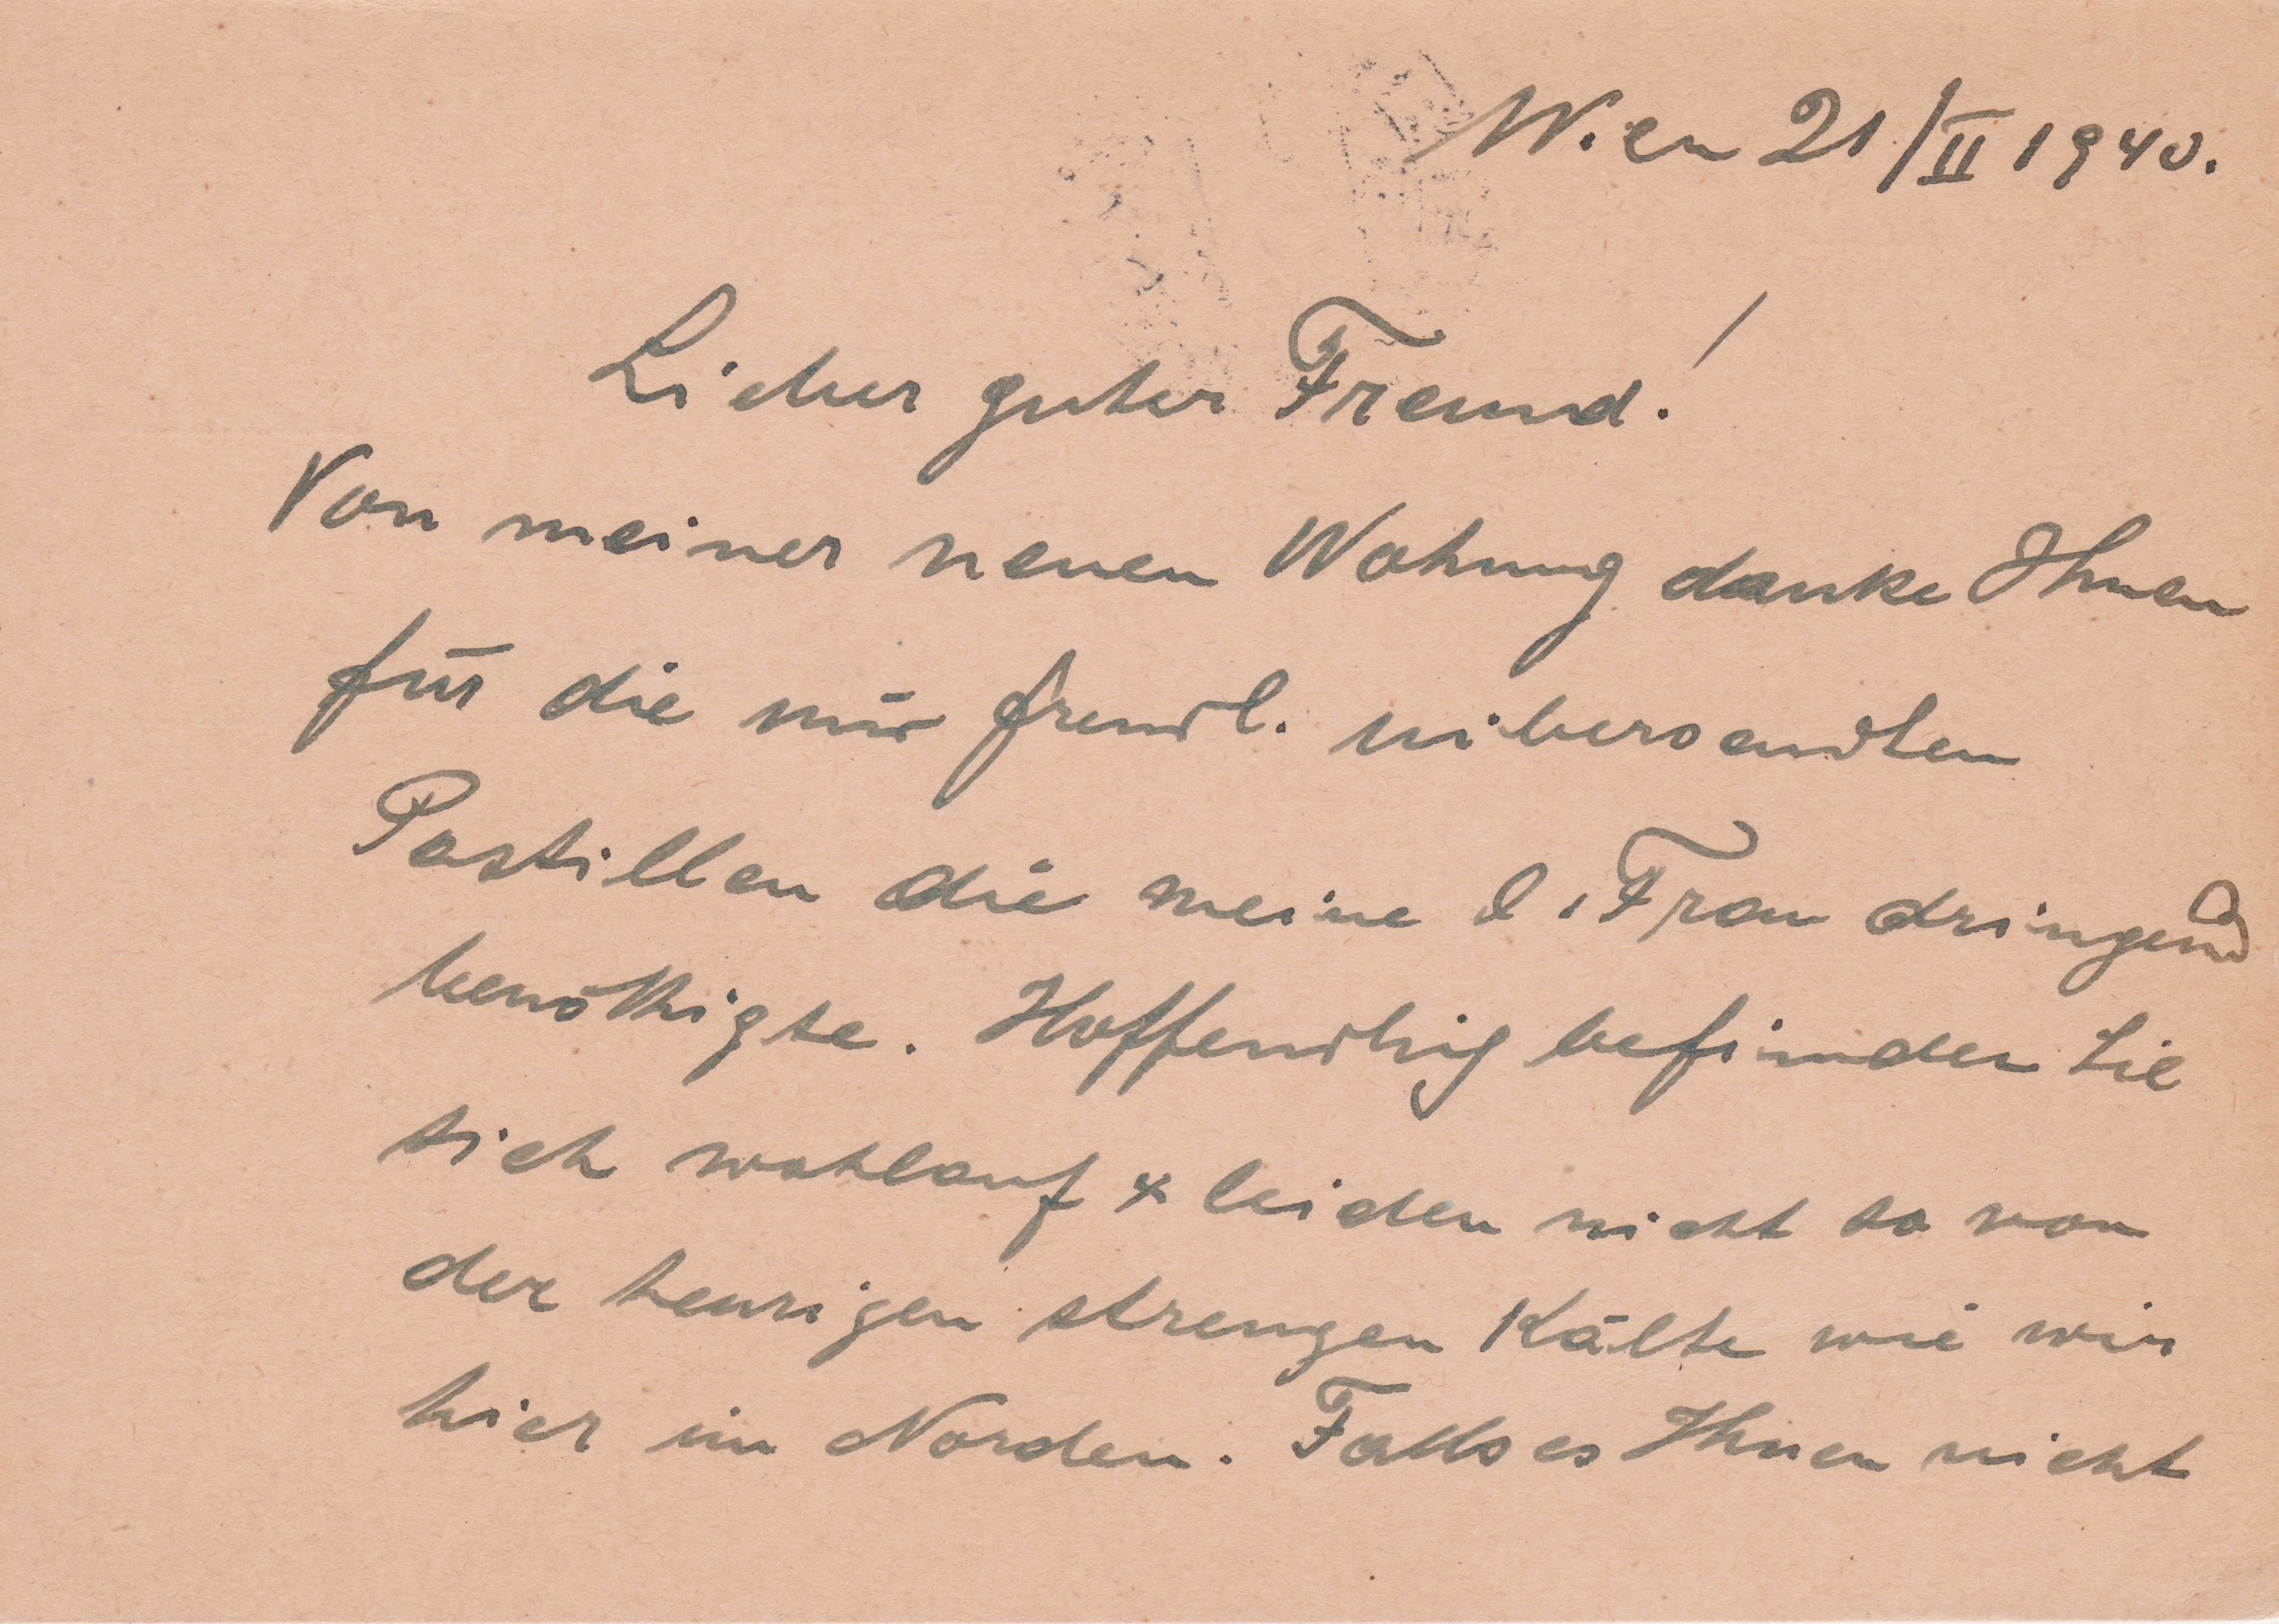 Wien 21/II 1940.
Lieber guter Freund!
Von meiner neuen Wohnung danke Ihnen
für die mir freundl. übersandten
Pastillen die meine l. Frau dringend
benöthigte. Hoffendlig befinden Sie
sich wohlauf & leiden nicht so von
der heurigen strengen Kälte wie wir
hier im Norden. Falls es Ihnen nicht